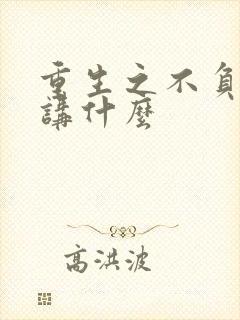 重生之不負
講什麼
高洪波